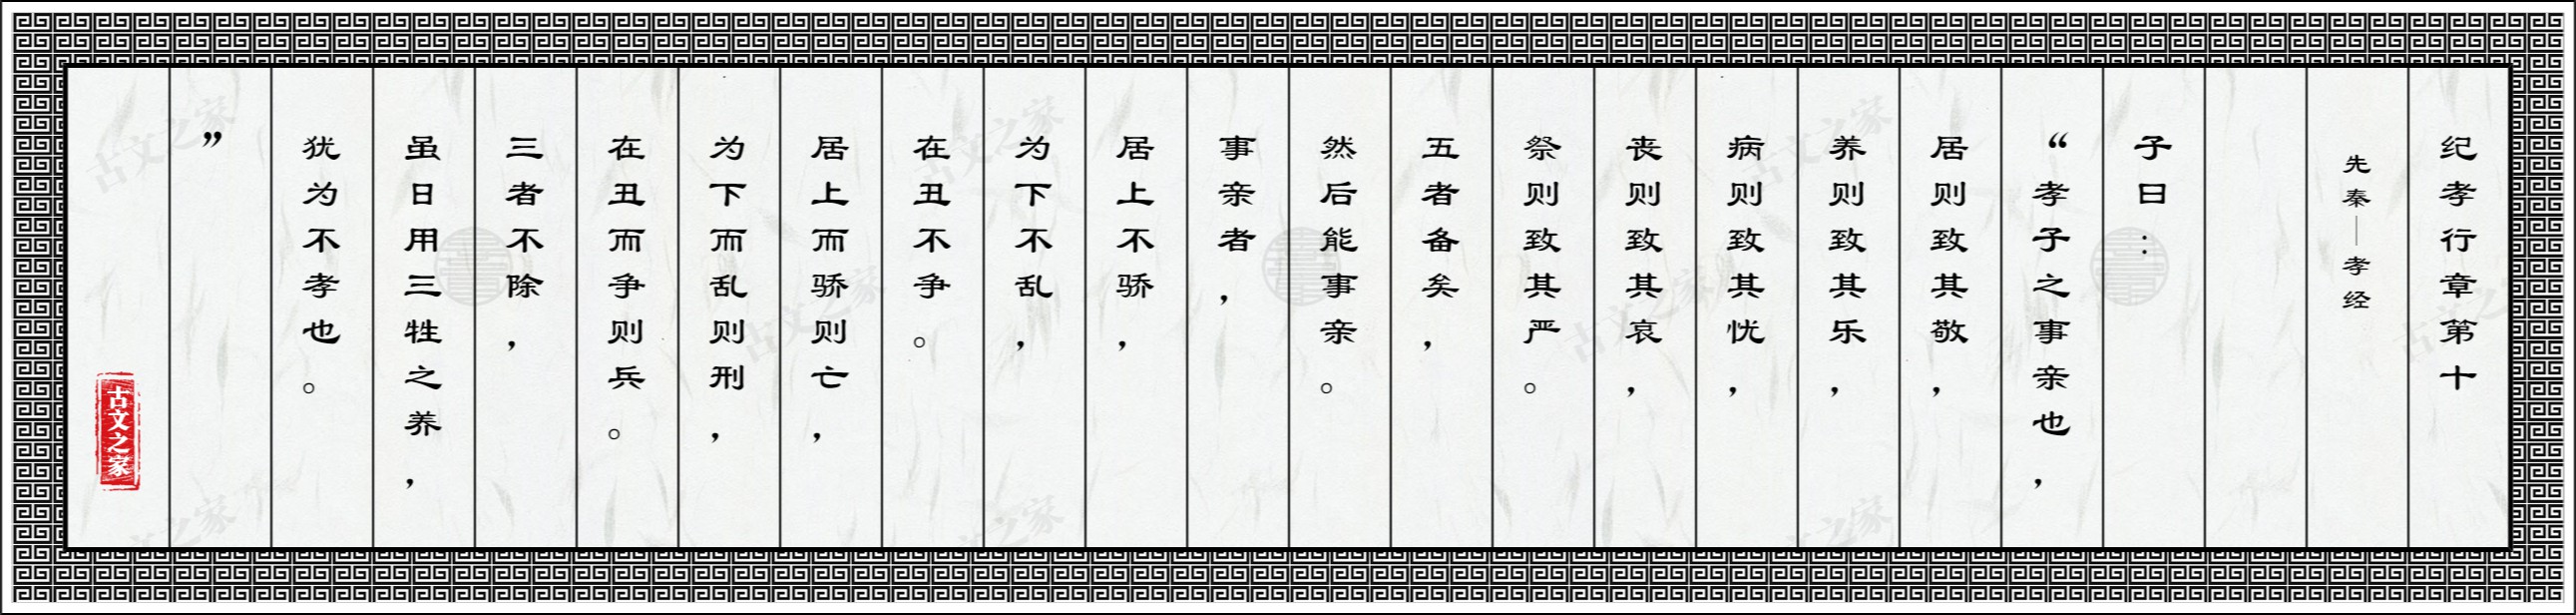 纪孝行章第十
先秦—孝经
子曰：
“孝子之事亲也，
居则致其敬，
养则致其乐，
病则致其忧，
丧则致其哀，
祭则致其严。
五者备矣，
然后能事亲。
事亲者，
居上不骄，
为下不乱，
在丑不争。
居上而骄则亡，
为下而乱则刑，
在丑而争则兵。
三者不除，
虽日用三牲之养，
犹为不孝也。
”
古文之家